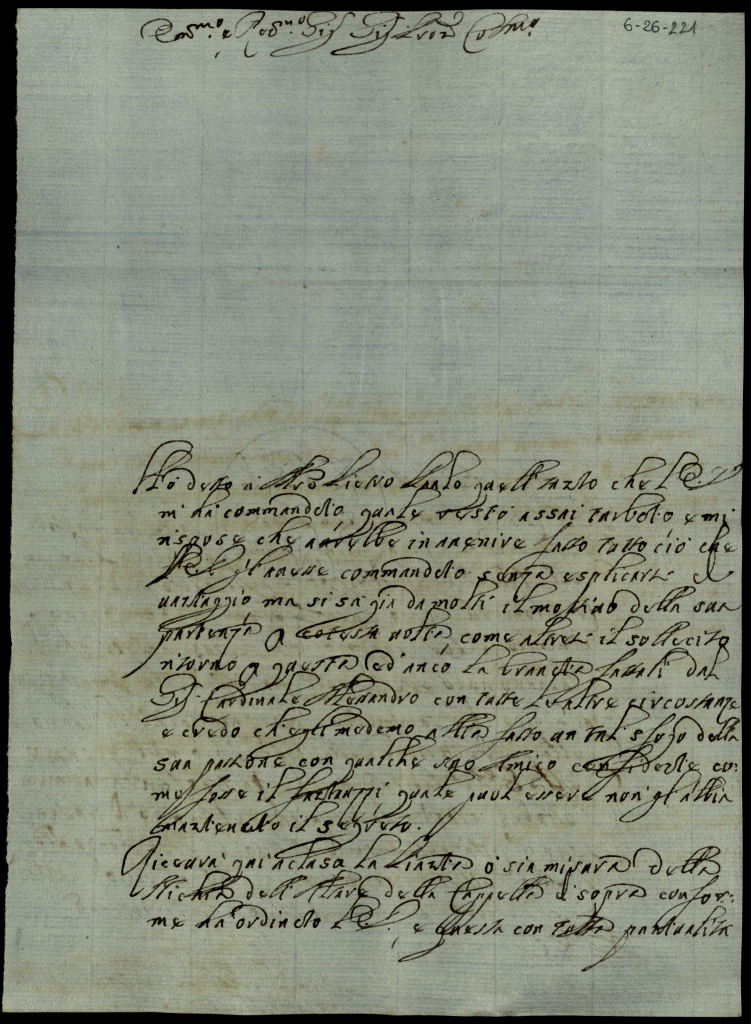 Em.mo e Rev.mo Sig. Sig. Pron. Col.mo
6-26-221
Hò detto à Pietro Paolo quell tanto che V.E.
m'hà commandato, quale restò assai turbato e mi
rispose che havrebbe in avenire fatto tutto ciò che
V.E. gl'havesse commandato senza esplicarsi d'
vantaggio ma si sa già da molti il motivo della sua
partenza p cotesta volta, come altresi il sollecito
ritorno p questa ed'anco la fattali dal
Sig. Cardinale Alessandro con tutte l'altre circostanze
e credo ch'egli medemo abbia fatto un tal sfogo della
sua passione con qualche suo Amico confidente co:
me fosse il quale puol essere non gl'abbia
mantenuto il segreto.
Riceverà quì inclusa la Pianta ò sia misura della
Nichia dell'Altare della Cappella di sopra confor:
me hà ordinato V.E., e questa con tutta puntualità